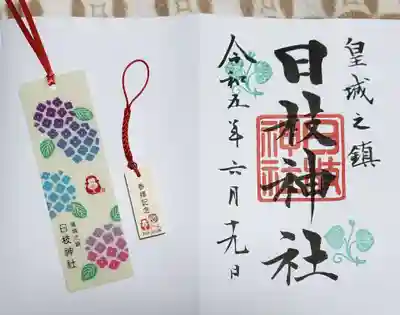 皇城之鎮
日枝神社
日枝神社
令和五年六月十九日
参拝記念
皇城之鎮
日枝神社